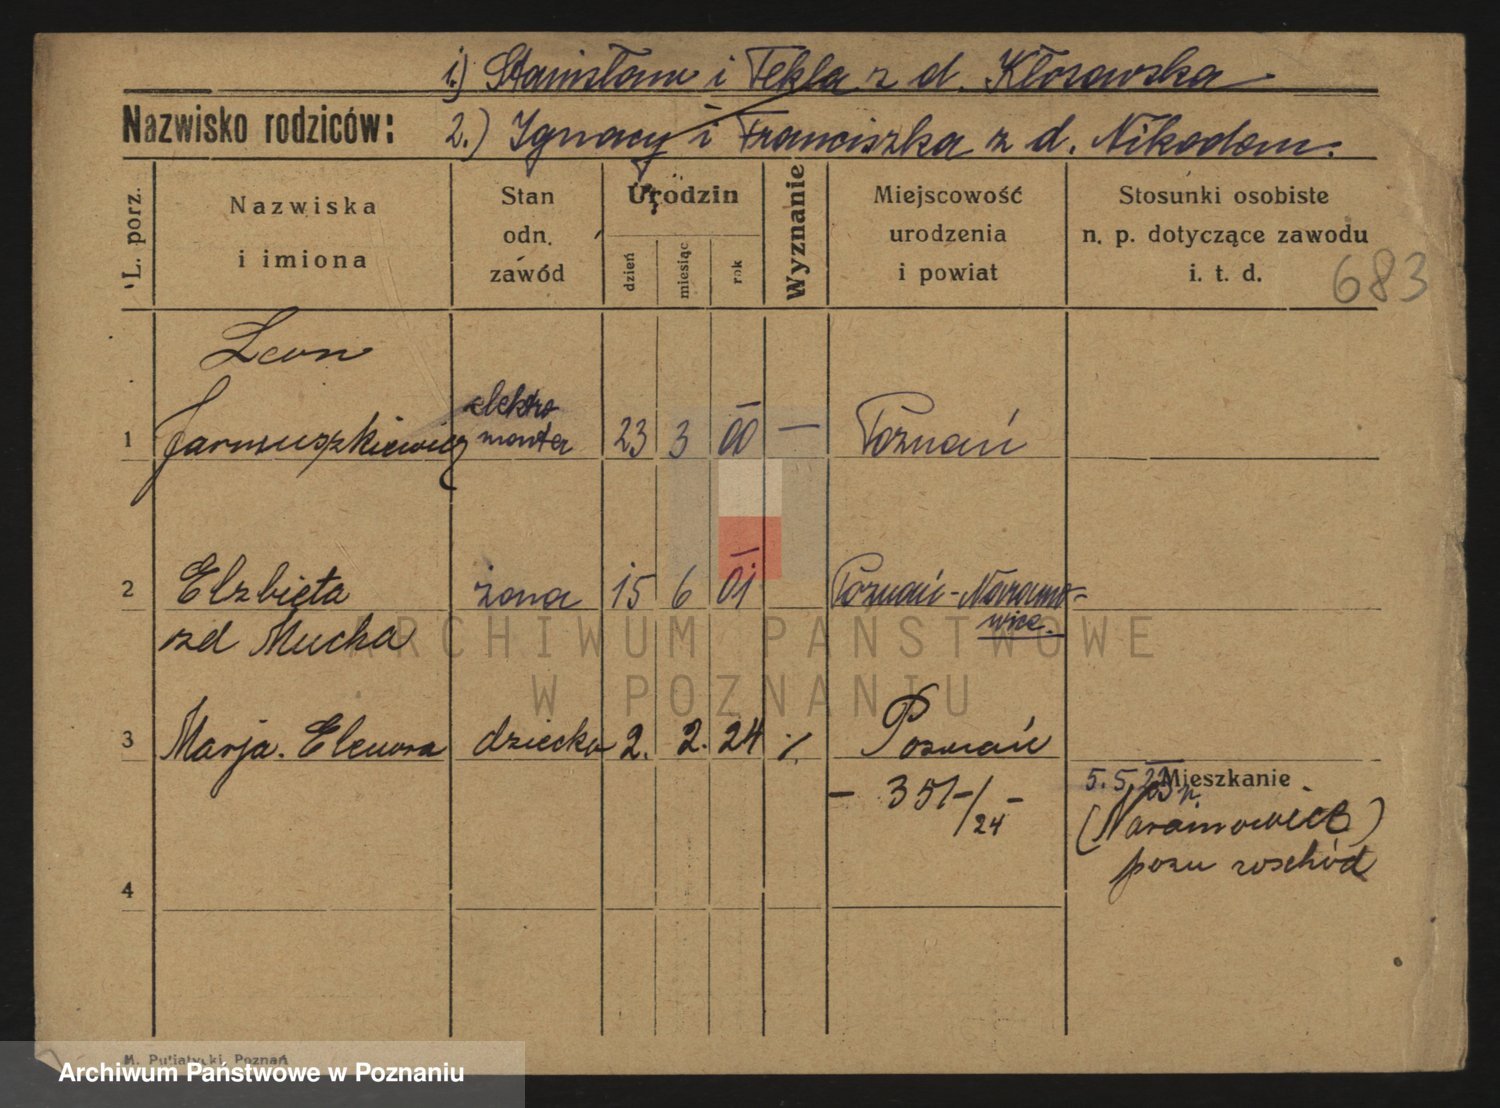 1.) Stanisław i Tekla z d. Kłosowska
Nazwisko rodziców: 2.) Ignacy i Franciszka z d. Nikodem.
L. porz.
Nazwiska
i imiona
Stan
odn.
zawód
Urodzin
dzień
miesiąc
rok
Wyznanie
Miejscowość
urodzenia
i powiat
Stosunki osobiste
n. p. dotyczące zawodu
i. t. d.
683
Leon
1 Jarmuszkiewicz elektro monter 23 3 00 — Poznań
2 Elżbieta żona 15 6 01 Poznań-Naramo-
wice.
zd Mucha
ARCHIWUM PAŃSTWOWE
W POZNANIU
3 Marja. Eleonora dziecko 2. 2. 24 ./. Poznań
5. 5. 23 Mieszkanie
- 351/24 -
(Naramowice)
pozn wschód
4
M. Putiatycki, Poznań
Archiwum Państwowe w Poznaniu